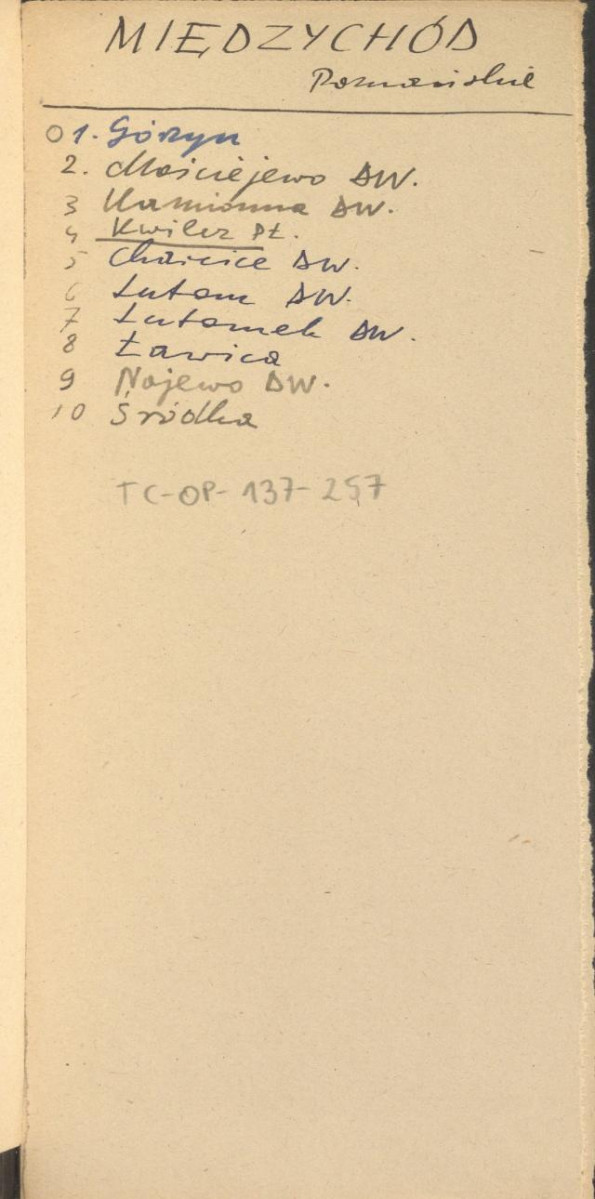 MIĘDZYCHÓD
Poznańskie
O 1. Górzyn
2. Mościejewo DW.
3 Kamionna DW.
4 Kwilcz PŁ.
5 Chalice DW.
6 Lutom DW.
7 Lutomek DW.
8 Ławica
9 Nojewo DW.
10 Śródka
TC-OP-137-257